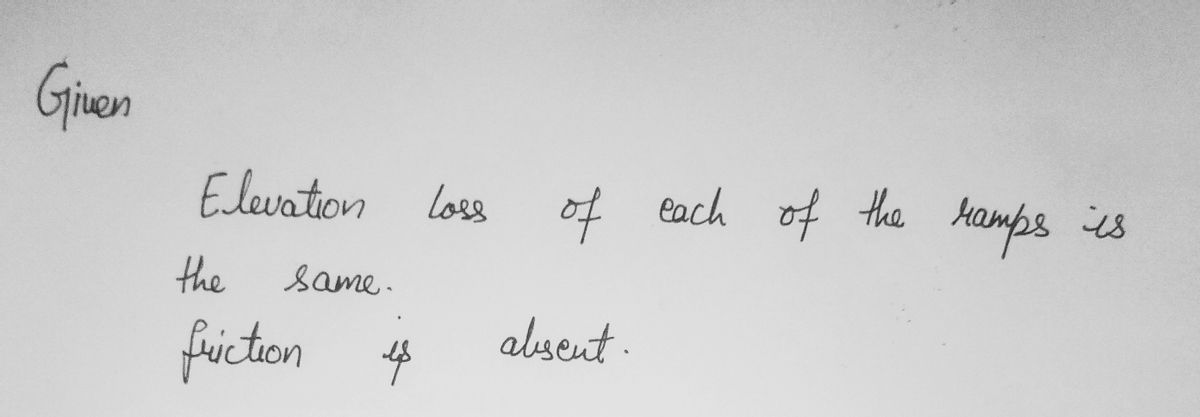 Given
Elevation loss of each of the ramps is
the same.
friction is absent.